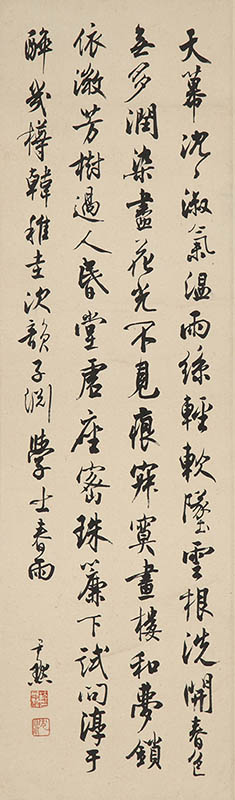 天幕沈沈淑氣溫雨絲輕軟墜雲根洗開春色
無多潤染盡花光不見痕寂寞畫樓和夢鎖
依微芳樹過人昏堂虛座密珠簾下試問淳于
醉幾樽韓稚圭次韻子淵學士春雨
尹默